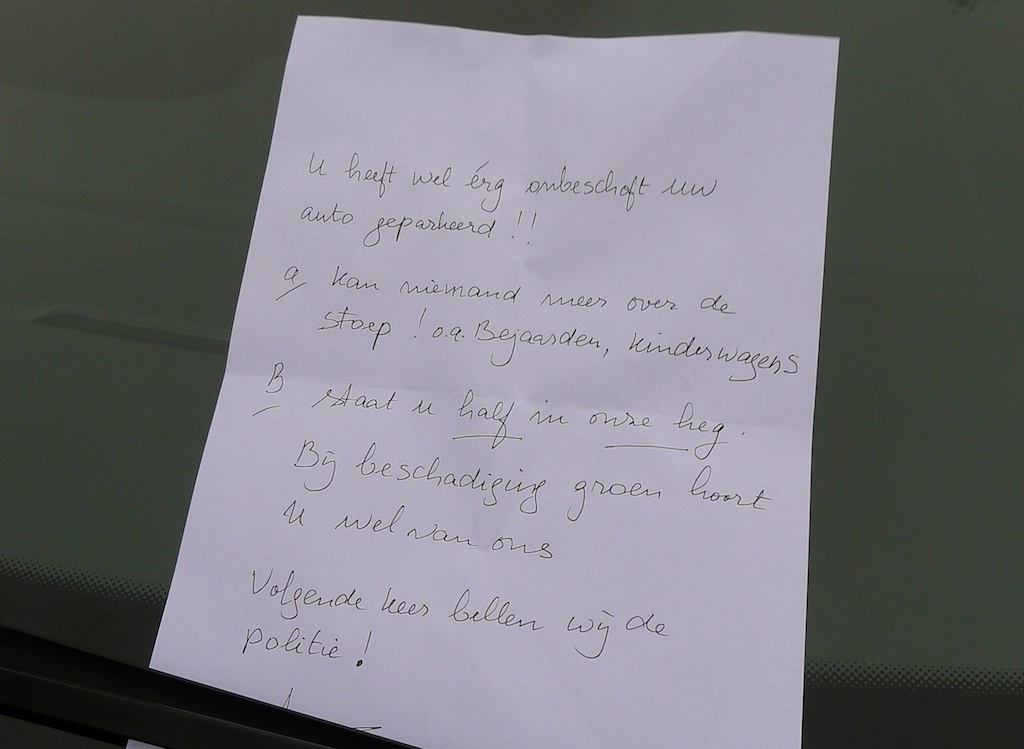 U heeft wel érg onbeschoft uw
auto geparkeerd !!
a kan niemand meer over de
stoep ! o.a. Bejaarden, kinderwagens
B staat u half in onze heg.
Bij beschadiging groen hoort
u wel van ons
Volgende keer bellen wij de
politie !